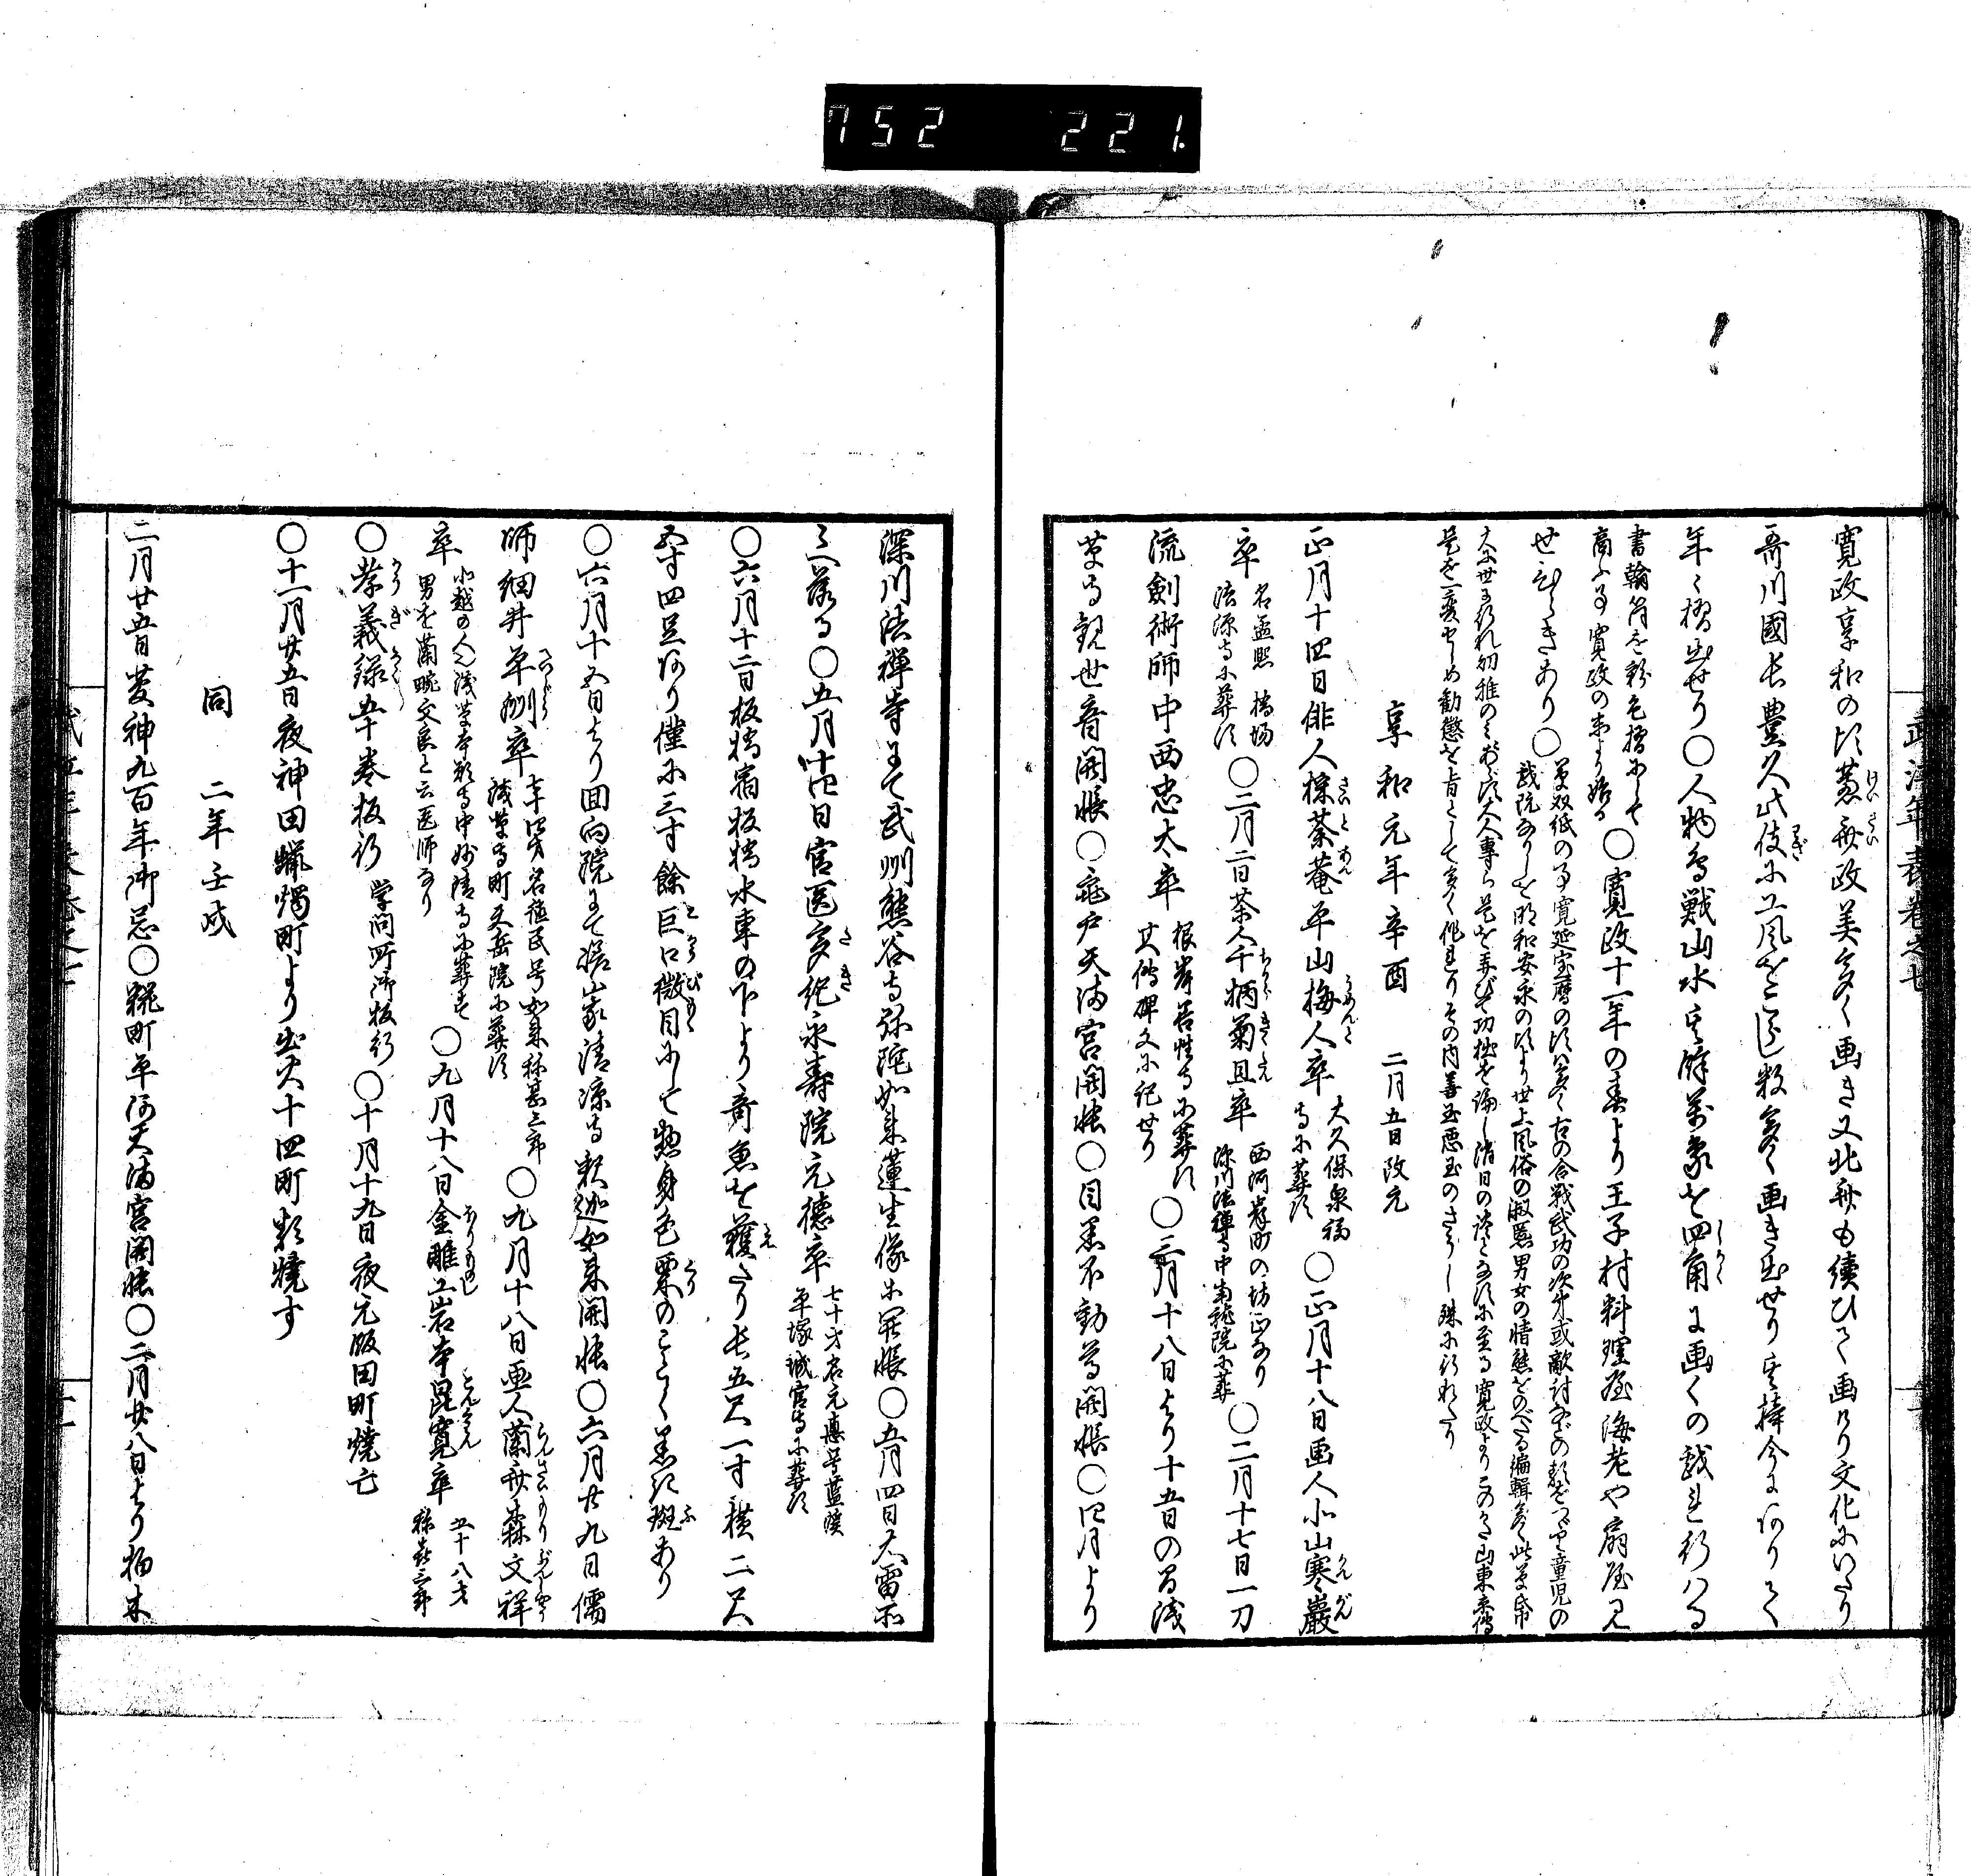 752 221.
武江年表巻之七
寛政享和の頃蕙斎政美多く画き又北斎も続ひて画けり文化にいたり
哥川國長豊久此伎に工風をこらし数多く画き出せり其梓今にありて
年々摺出せり〇人物鳥獣山水其餘萬象を四角に画くの戯れ行はる
書翰角を彩色摺にして
商ふ事寛政の末より始る
〇寛政十一年の春より王子村料理屋海老や扇屋見
せひらきあり〇
草双紙の事寛延宝暦の頃は多く古の合戦武功の次第或敵討などの類をつゞりて童児の
戯翫なりしを明和安永の頃より世上風俗の淑慝男女の情態をのべたる編輯多く此草帋
大に世に行れ幼稚のみならず大人専ら是を弄びて功拙を論し消日の談となすに至る寛政よりこのかた山東京傳
是を一変せしめ勧懲を旨として多く作れりその内善玉悪玉のさうし殊に行れたり
享和元年辛酉 二月五日改元
正月十四日俳人採荼菴平山梅人卒
大久保泉福
寺に葬す
〇正月十八日画人小山寒巖
卒
名孟熙 橋場
法源寺に葬す
〇二月二日茶人千柄菊旦卒
西河岸町の坊正なり
深川法禅寺中南龍院に葬
〇二月十七日一刀
流劍術師中西忠太卒
根岸若性寺に葬す
其傳碑文に記せり
〇三月十八日より十五日の間浅
草寺観世音開帳〇亀戸天満宮開帳〇目黒不動尊開帳〇四月より
深川法禅寺にて武州熊谷寺弥陀如来蓮生像等開帳〇五月四日大雷所
々へ落る〇五月廿四日官医多紀永壽院元徳卒
七十才名元悳号藍溪
平塚城官寺に葬す
〇六月十二日板橋宿板橋水車の下より奇魚を獲たり長五尺一寸横二尺
五寸四足あり僅に三寸餘巨口微目にして惣身色栗のことく黒き斑あり
〇六月十五日より回向院にて嵯峨清凉寺釈迦如来開帳〇六月廿九日儒
師細井平洲卒
七十四才名徳民号如来称甚三郎
浅草寺町天岳院に葬す
〇九月十八日画人蘭斎森文祥
卒
小越の人浅草本願寺中妙清寺に葬す
男を蘭畹文良と云医師なり
〇九月十八日金雕工岩本昆寛卒
五十八才
称喜三郎
〇孝義録五十巻板行
学問所御板行
〇十月十九日夜元飯田町焼亡
〇十一月廿五日夜神田蝋燭町より出火十四町類焼す
同 二年壬戌
二月廿五日菅神九百年御忌〇糀町平河天満宮開帳〇二月廿八日より柏木
武江年表巻之七